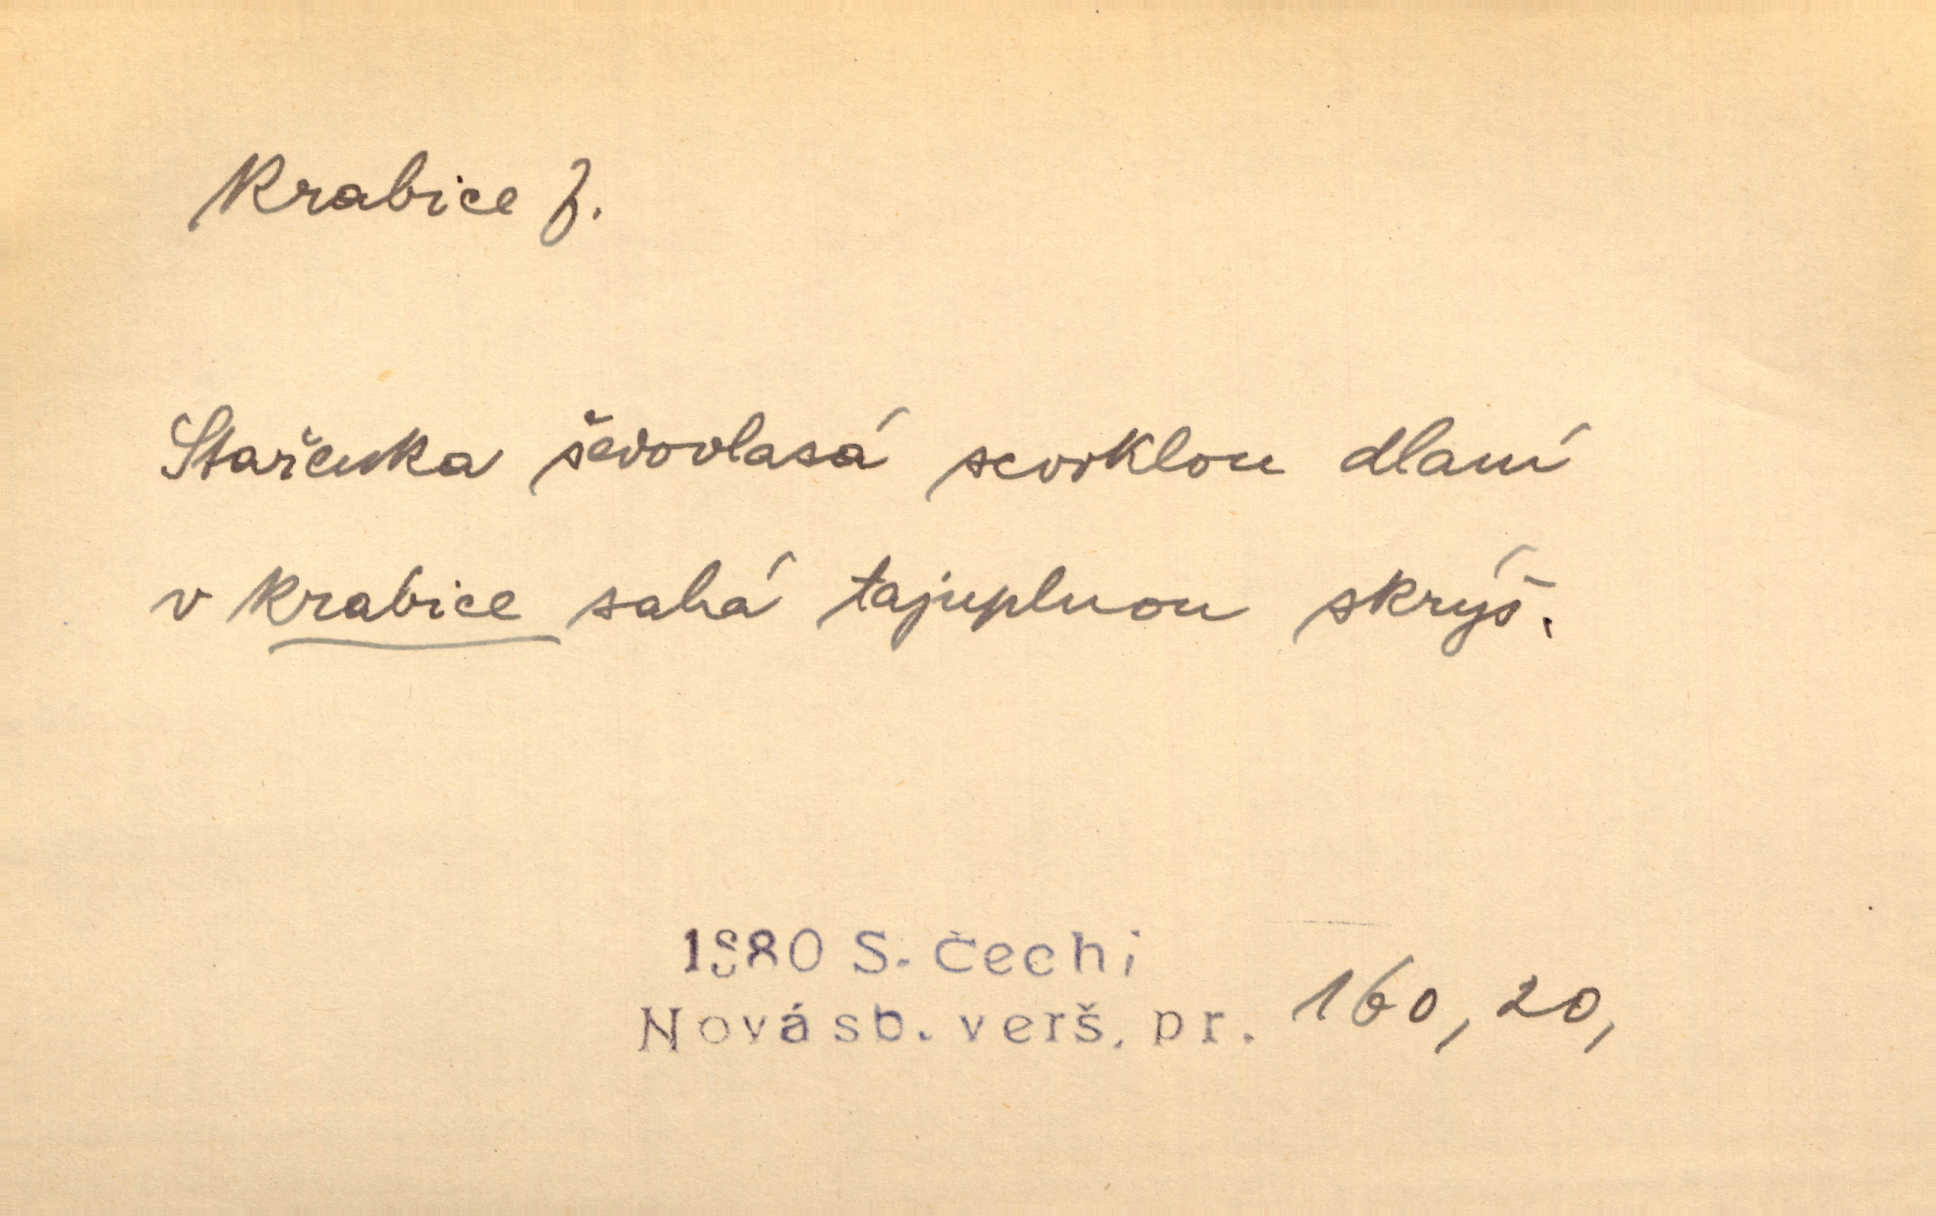 Krabice f.
Stařenka šedovlasá scvrklou dlaní
v krabice sahá tajuplnou skrýš.
1880 S. Čech i
Nová sb. verš. pr. 160, 20,